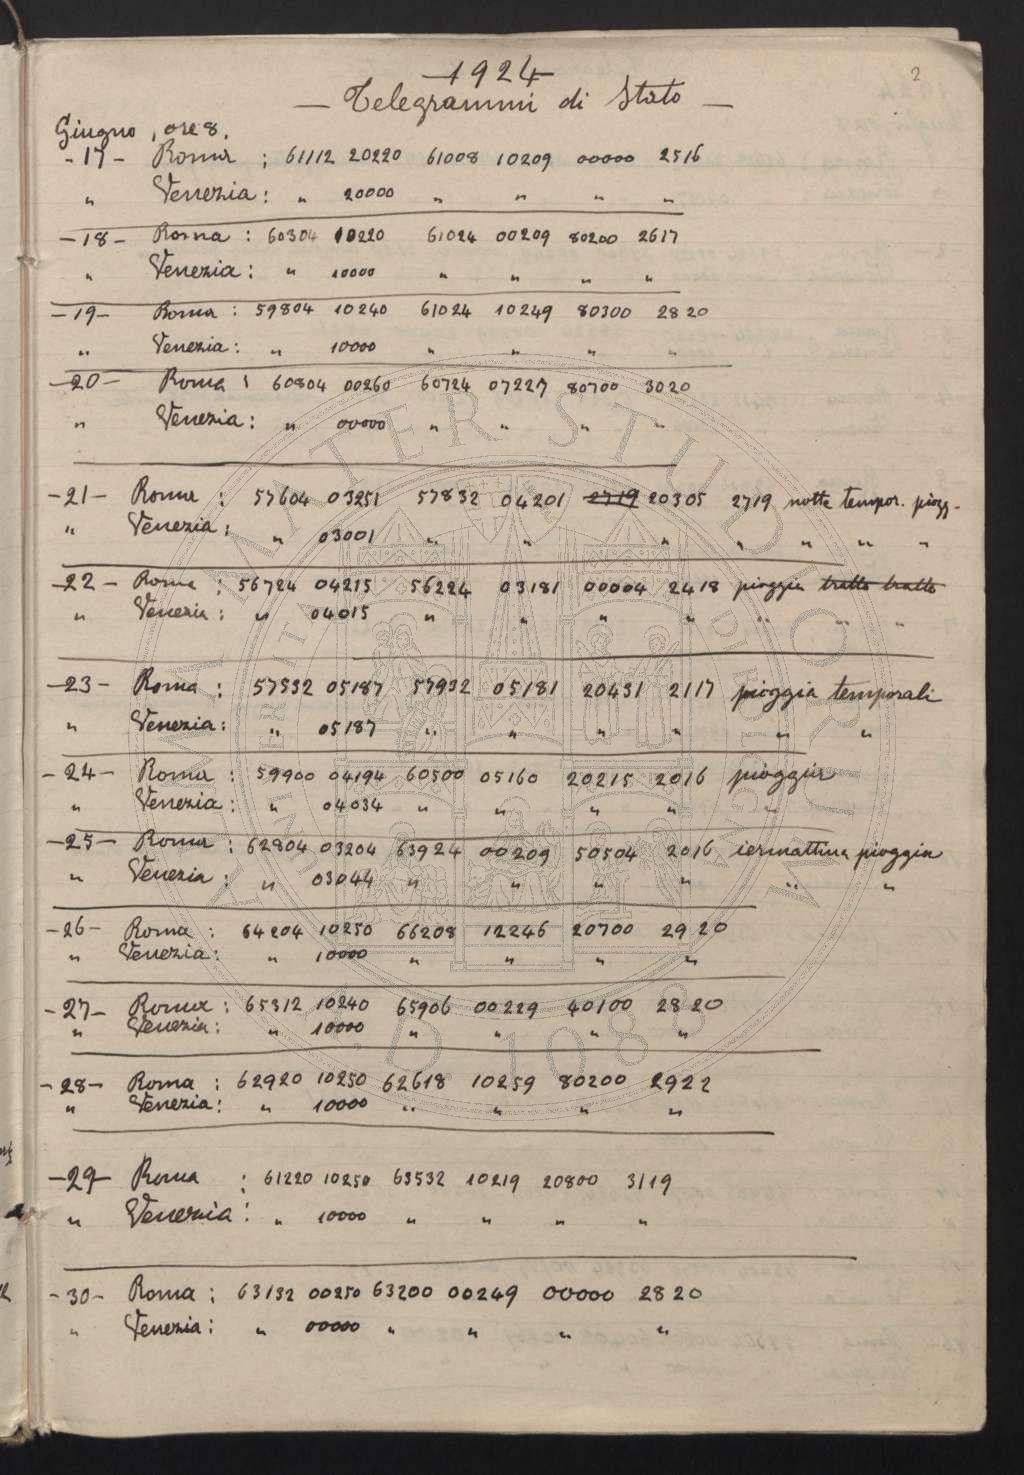 2
-1924-
- Telegrammi di Stato -
Giugno, ore 8.
-17- Roma : 61112 20220 61008 10209 00000 2516
" Venezia : " 20000 " " " "
-18- Roma : 60304 10220 61024 00209 80200 2617
" Venezia : " 10000 " " " "
-19- Roma : 59804 10240 61024 10249 80300 2820
" Venezia : " 10000 " " " "
-20- Roma : 60804 00260 60724 07227 80700 3020
" Venezia : " 00000 " " " "
-21- Roma : 57604 03251 57832 04201 2719 20305 2719 notte tempor. piogg-
" Venezia : " 03001 " " " " " " "
-22- Roma : 56724 04215 56224 03181 00004 2418 pioggia tratto tratto
" Venezia : " 04015 " " " " " " "
-23- Roma : 57532 05187 57932 05181 20431 2117 pioggia temporali
" Venezia : " 05187 " " " " " "
-24- Roma : 59900 04194 60500 05160 20215 2016 pioggia
" Venezia : " 04034 " " " " "
-25- Roma : 62804 03204 63924 00209 50504 2016 iermattina pioggia
" Venezia : " 03044 " " " " " "
-26- Roma : 64204 10250 66208 12246 20700 2920
" Venezia : " 10000 " " " "
-27- Roma : 65312 10240 65906 00229 40100 2820
" Venezia : " 10000 " " " "
-28- Roma : 62920 10250 62618 10259 80200 2922
" Venezia : " 10000 " " " "
-29- Roma : 61220 10250 63532 10219 20800 3119
" Venezia : " 10000 " " " "
-30- Roma : 63132 00250 63200 00249 00000 2820
" Venezia : " 00000 " " " "
ALMA MATER STUDIORUM
A.D. 1088